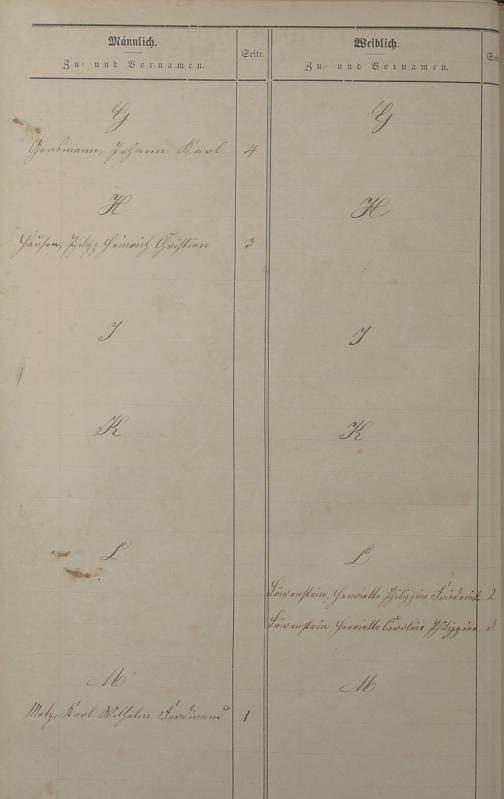 Männlich.
Zu- und Vornamen.
Seite.
G
Gausmann, Johann Karl 4
H
Häuser, Philipp Heinrich Christian 3
I
K
L
M
Metz, Karl Wilhelm Ferdinand 1
Weiblich.
Zu- und Vornamen.
G
H
I
K
L
Löwenstein, Henriette Philippine Friederike 2
Löwenstein Henriette Caroline Philippine 3
M